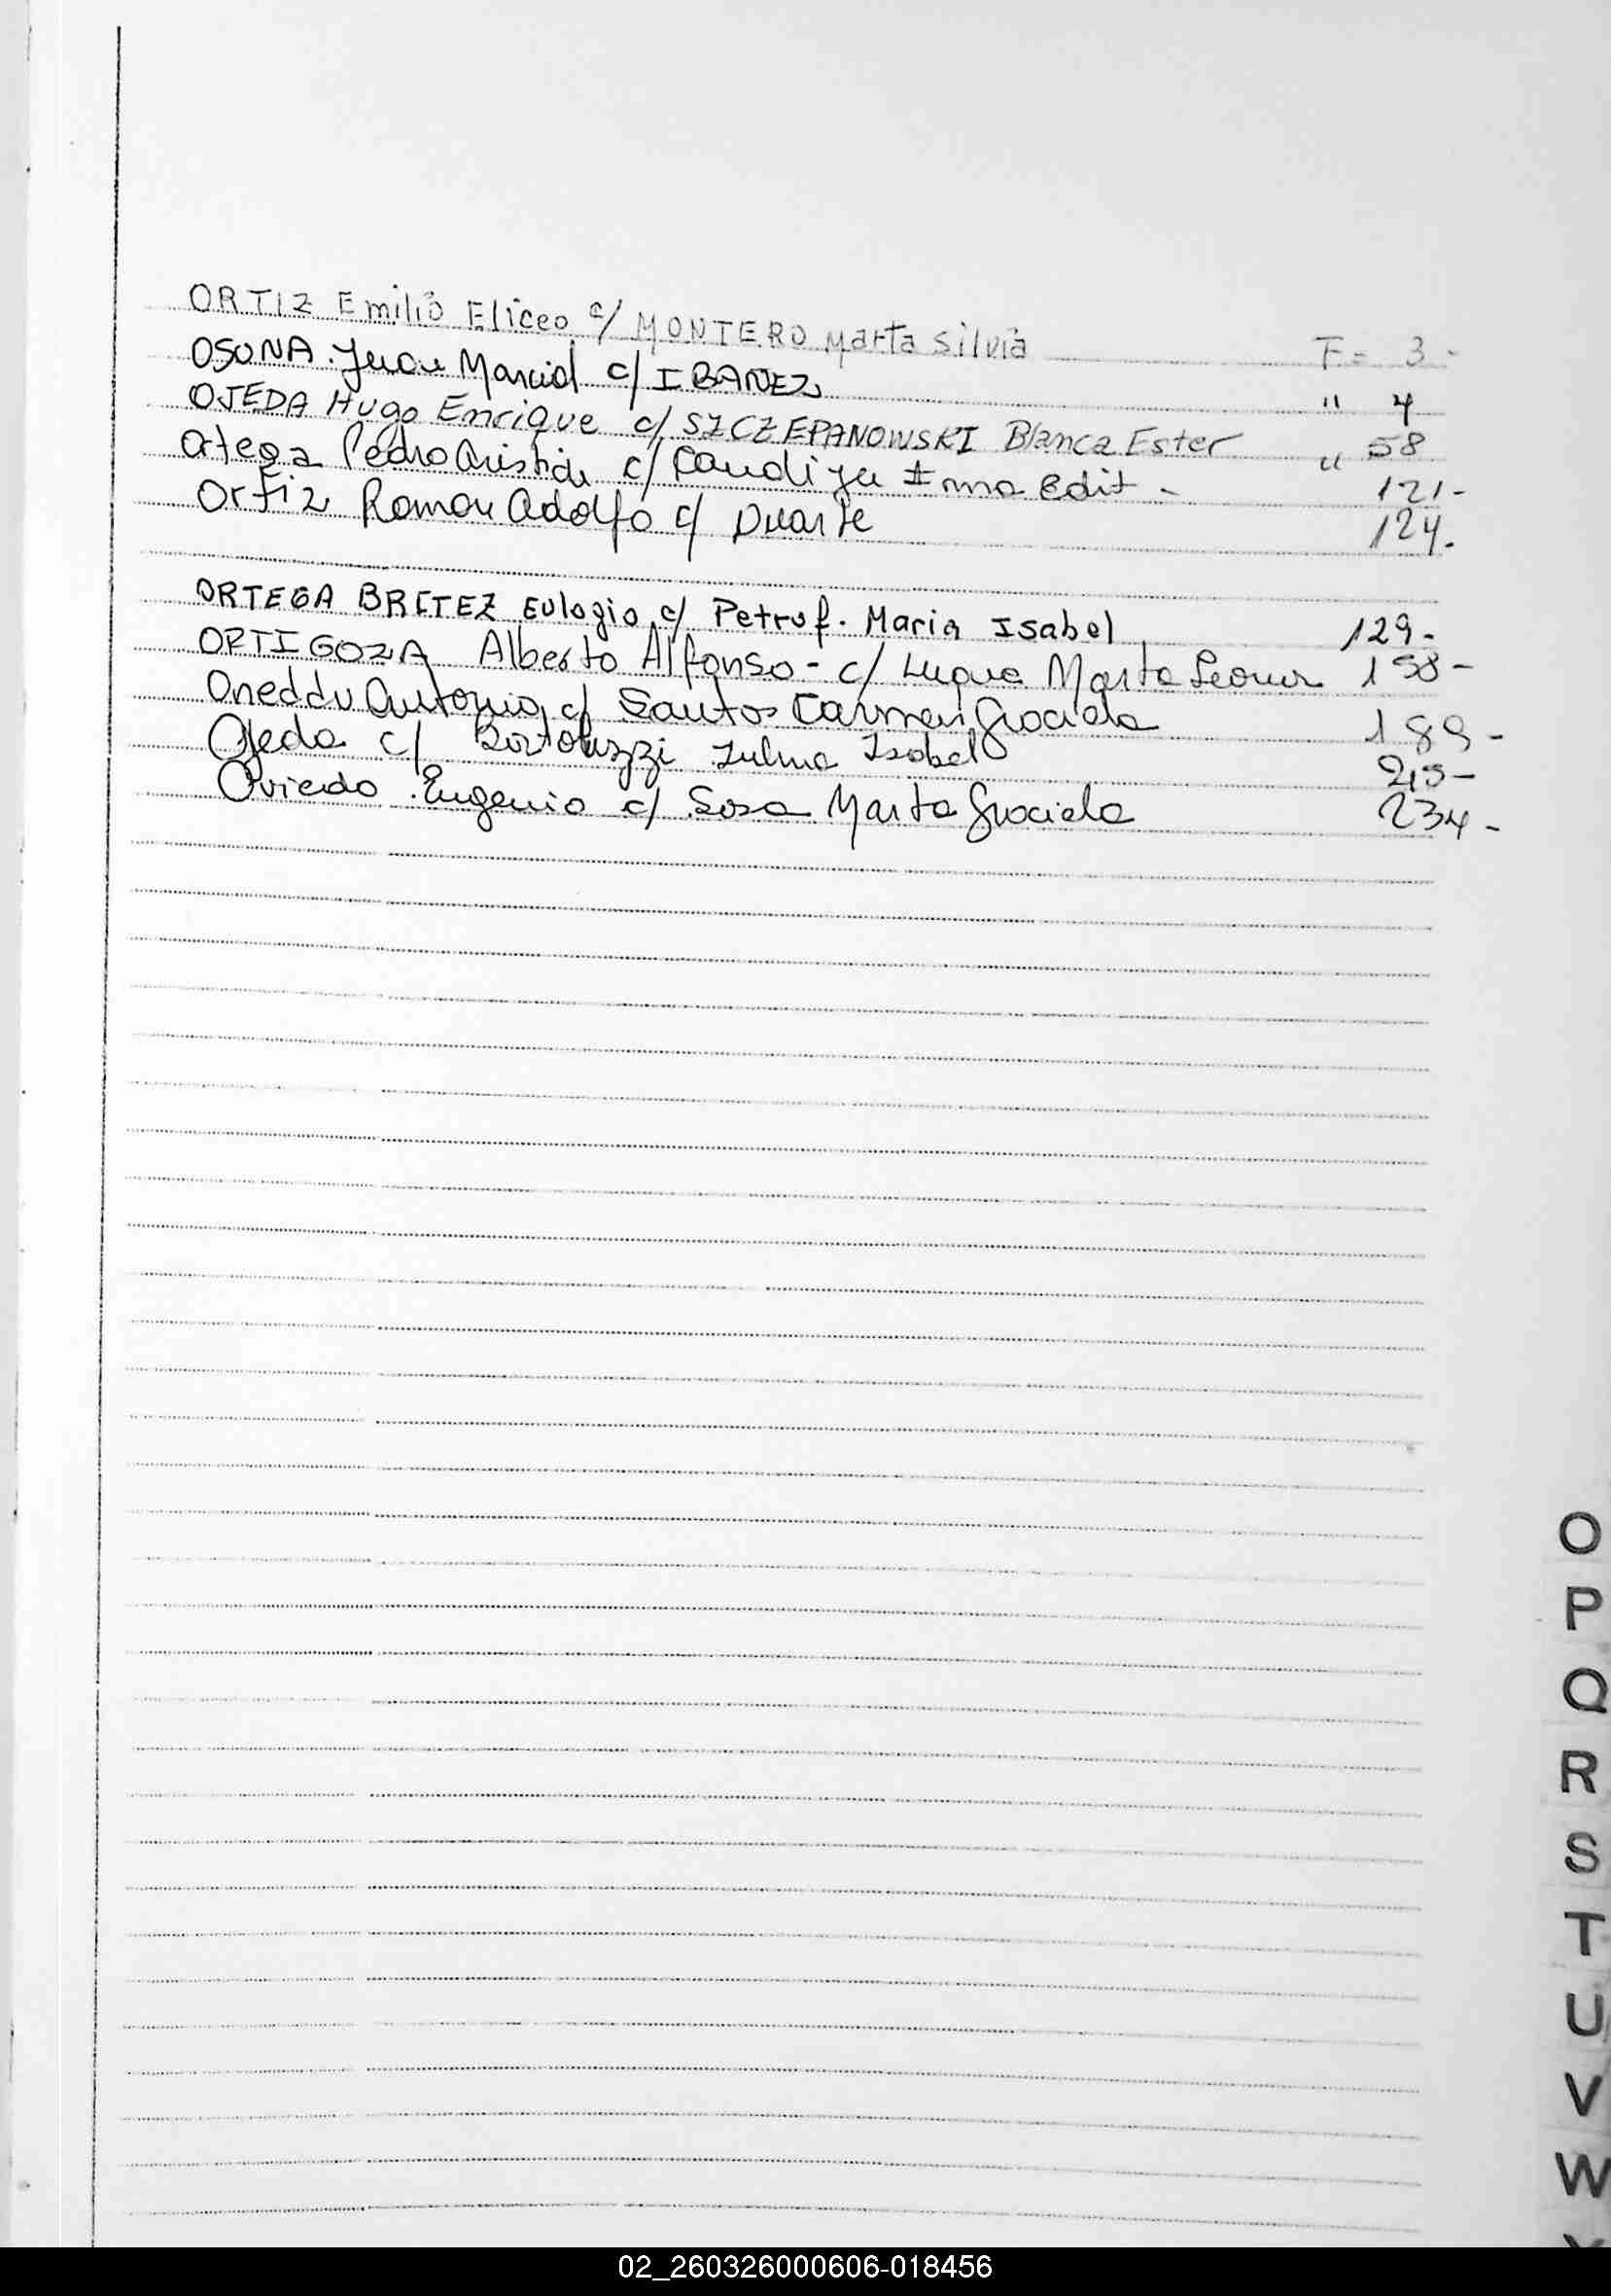 ORTIZ Emilio Eliceo c/ MONTERO Marta Silvia F= 3-
OSUNA Juan Marcial c/ IBAÑEZ " 4
OJEDA Hugo Enrique c/ SZCZEPANOWSKI Blanca Ester " 58
Ortega Pedro Aristide c/ Irma Edit - 121-
Ortiz Ramon Adolfo c/ Duarte 124.
ORTEGA BRITEZ Eulogio c/ Petrof. Maria Isabel 129-
ORTIGOZA Alberto Alfonso - c/ Luque Marta Leonor 158-
Oneddu Antonio c/ Santos Carmen Graciela 189-
Ojeda c/ Bortoluzzi Zulma Isabel 215-
Oviedo Eugenio c/ Sosa Marta Graciela 234-
O
P
Q
R
S
T
U
V
W
02_260326000606-018456